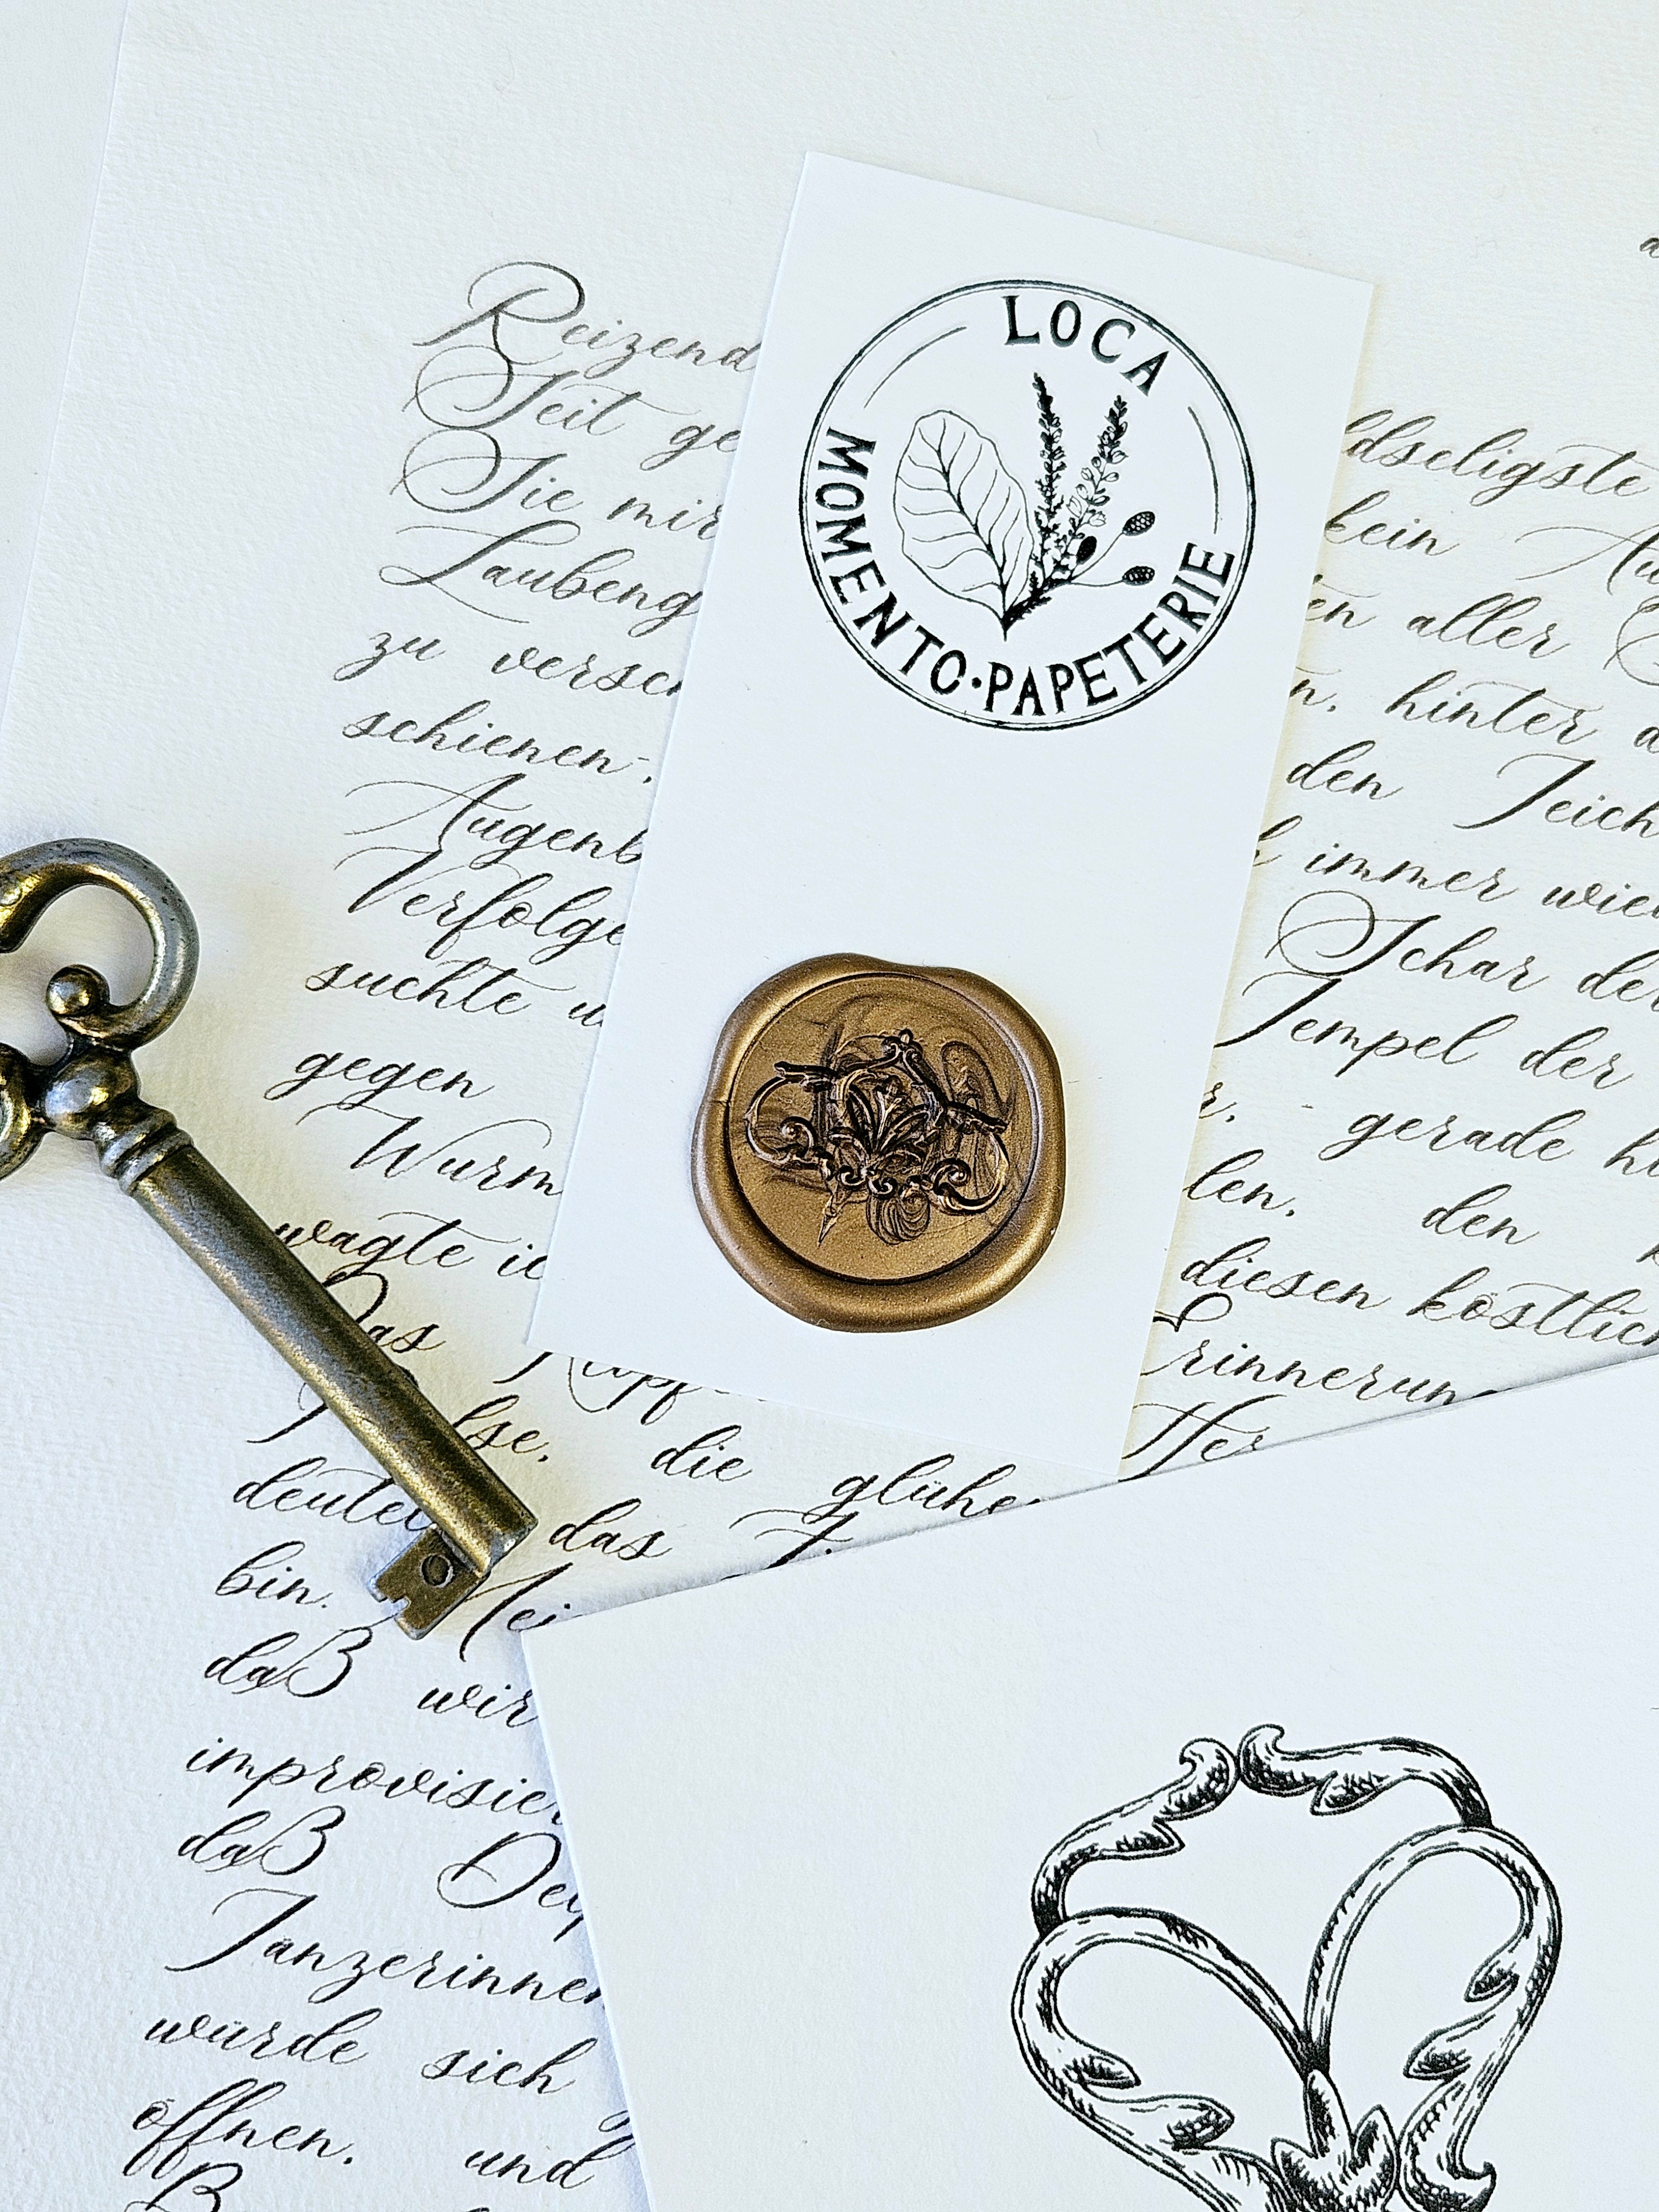 LOCA
MOMENTO·PAPETERIE
Reizend
Seit ge
Sie mir
Laubeng
zu versch
schienen,
Augenb
Verfolge
suchte u
gegen
Wurm
wagte ic
Das
lse,
die glühe
deutet das
bin.
daß wir
improvisier
daß
Tänzerinnen
würde sich
öffnen, und
ldseligste
kein Au
en aller
n, hinter d
den Teich
immer wied
Schar der
Tempel der
r, - gerade hi
len, den
diesen köstlich
Erinnerun
Her